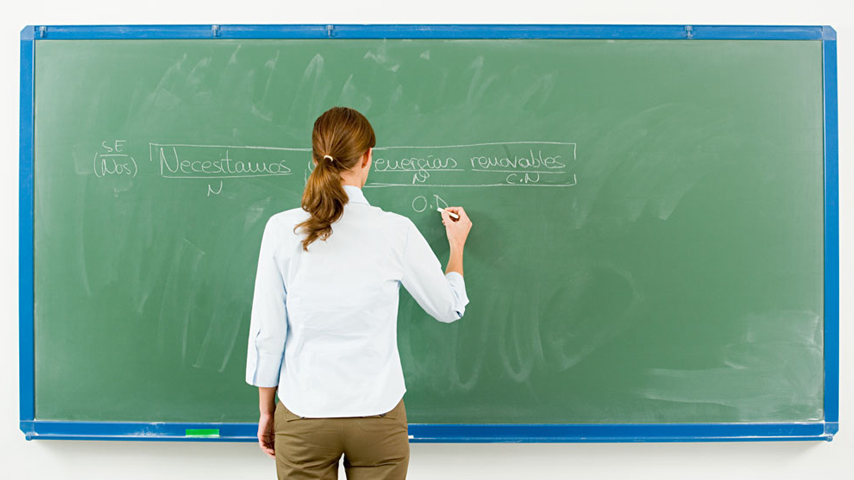 SE
(Nos) Necesitamos energías renovables
N N C.N
O.D